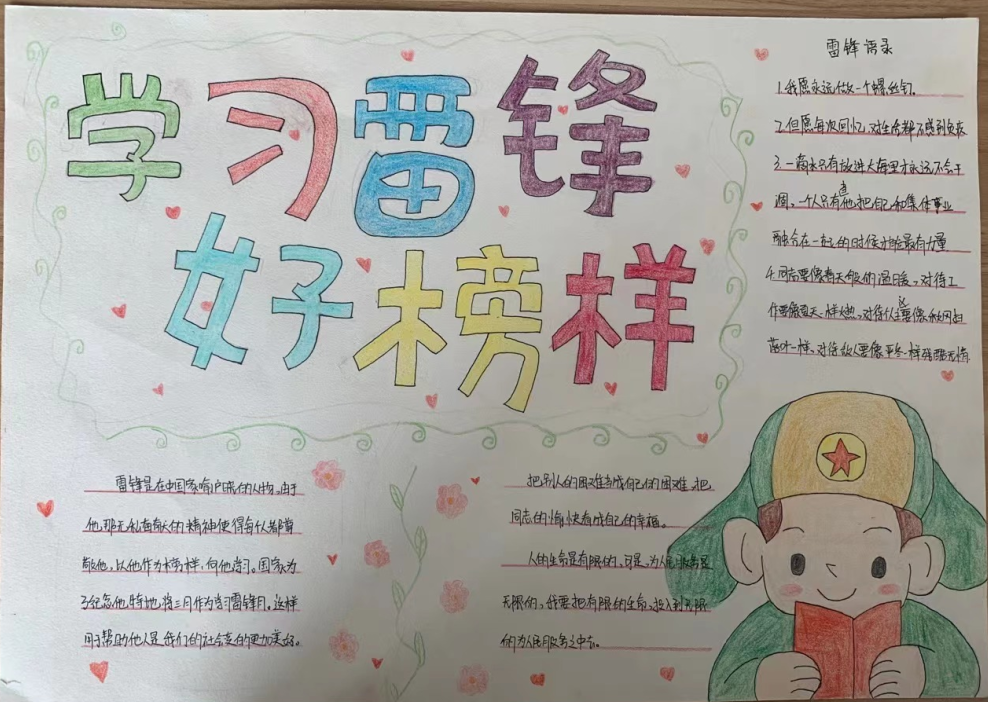 学习雷锋
好榜样
雷锋语录
1.我愿永远做一个螺丝钉。
2.但愿每次回忆,对生活都不感到负疚
3.一滴水只有放进大海里才永远不会干
涸,一个人只有当他把自己和集体事业
融合在一起的时候才能最有力量
4.同志要像春天般的温暖,对待工
作要像夏天一样火热,对待个人主义要像秋风扫
落叶一样,对待敌人要像严冬一样残酷无情
雷锋是在中国家喻户晓的人物,由于
他那无私奉献的精神使得每个人都尊
敬他,以他作为榜样,向他学习。国家为
了纪念他特地将三月作为学习雷锋月。这样
用于帮助他人是我们的社会变的更加美好。
把别人的困难当成自己的困难,把
同志的愉快看成自己的幸福。
人的生命是有限的,可是,为人民服务是
无限的,我要把有限的生命,投入到无限
的为人民服务之中去。